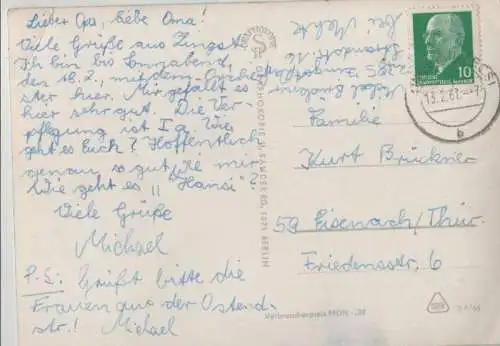 Lieber Opa, liebe Oma!
Viele Grüße aus Zingst.
Ich bin bis Sonnabend,
den 18.2., mit dem Orche-
ster hier. Mir gefällt es
hier sehr gut. Die Ver-
pflegung ist I a. Wie
geht es Euch? Hoffentlich
genau so gut wie mir.
Wie geht es "Hansi"?
Viele Grüße
Michael
P.S.: Grüßt bitte die
Frauen aus der Ostend-
str.! Michael
bei Mehte
Strandstr. 16
10
13.2.67
b
Familie
Kurt Brückner
59 Eisenach/Thür.
Friedensstr. 6
1071 BERLIN
Verbraucherpreis MDN -,20